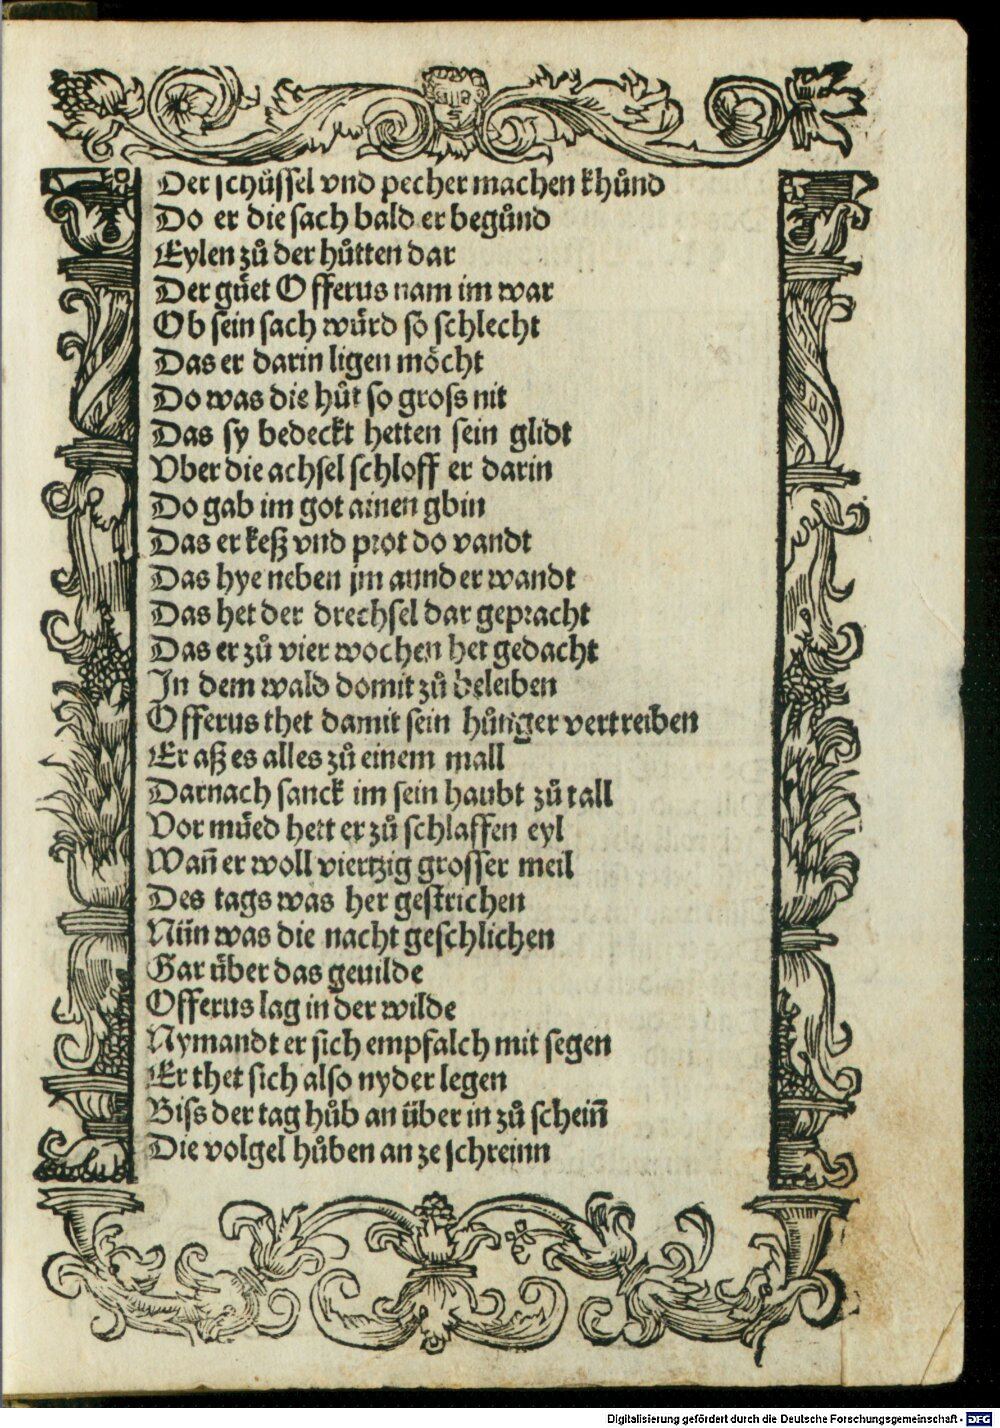 Der schüssel vnd pecher machen khůnd
Do er die sach bald er begůnd
Eylen zů der hůtten dar
Der gůet Offerus nam im war
Ob sein sach wůrd so schlecht
Das er darin ligen möcht
Do was die hůt so gross nit
Das sy bedeckt hetten sein glidt
Vber die achsel schloff er darin
Do gab im got ainen gbin
Das er keß vnd prot do vandt
Das hye neben jm aund er wandt
Das het der drechsel dar gepracht
Das er zů vier wochen het gedacht
In dem wald domit zů beleiben
Offerus thet damit sein hůnger vertreiben
Er aß es alles zů einem mall
Darnach sanck im sein haubt zů tall
Vor můed hett er zů schlaffen eyl
Wan̄ er woll viertzig grosser meil
Des tags was her gestrichen
Nün was die nacht geschlichen
Gar über das geuilde
Offerus lag in der wilde
Nymandt er sich empfalch mit segen
Er thet sich also nyder legen
Biss der tag hůb an über in zů schein̄
Die volgel hůben an ze schreinn
Digitalisierung gefördert durch die Deutsche Forschungsgemeinschaft - DFG